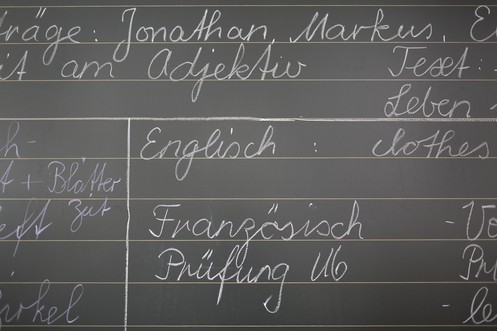 träge: Jonathan, Markus, E
it am Adjektiv Text:
Leben -
h- Englisch : clothes
t + Blätter
eft Zit Französisch - Ve
Prüfung U6 Pr
irkel - le